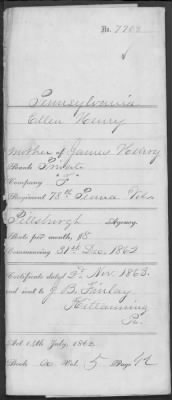 No. 7703
Pennsylvania
Ellen Henry
Mother of James Henry
Rank Private
Company "F"
Regiment 78th Penna Vols
Pittsburgh Agency.
Rate per month, $8
Commencing 31st Dec. 1862
Certificate dated 2d Nov 1863.
and sent to J. B. Finlay
Kittanning
Pa.
Act 14th July, 1862.
Book A Vol. 5 Page